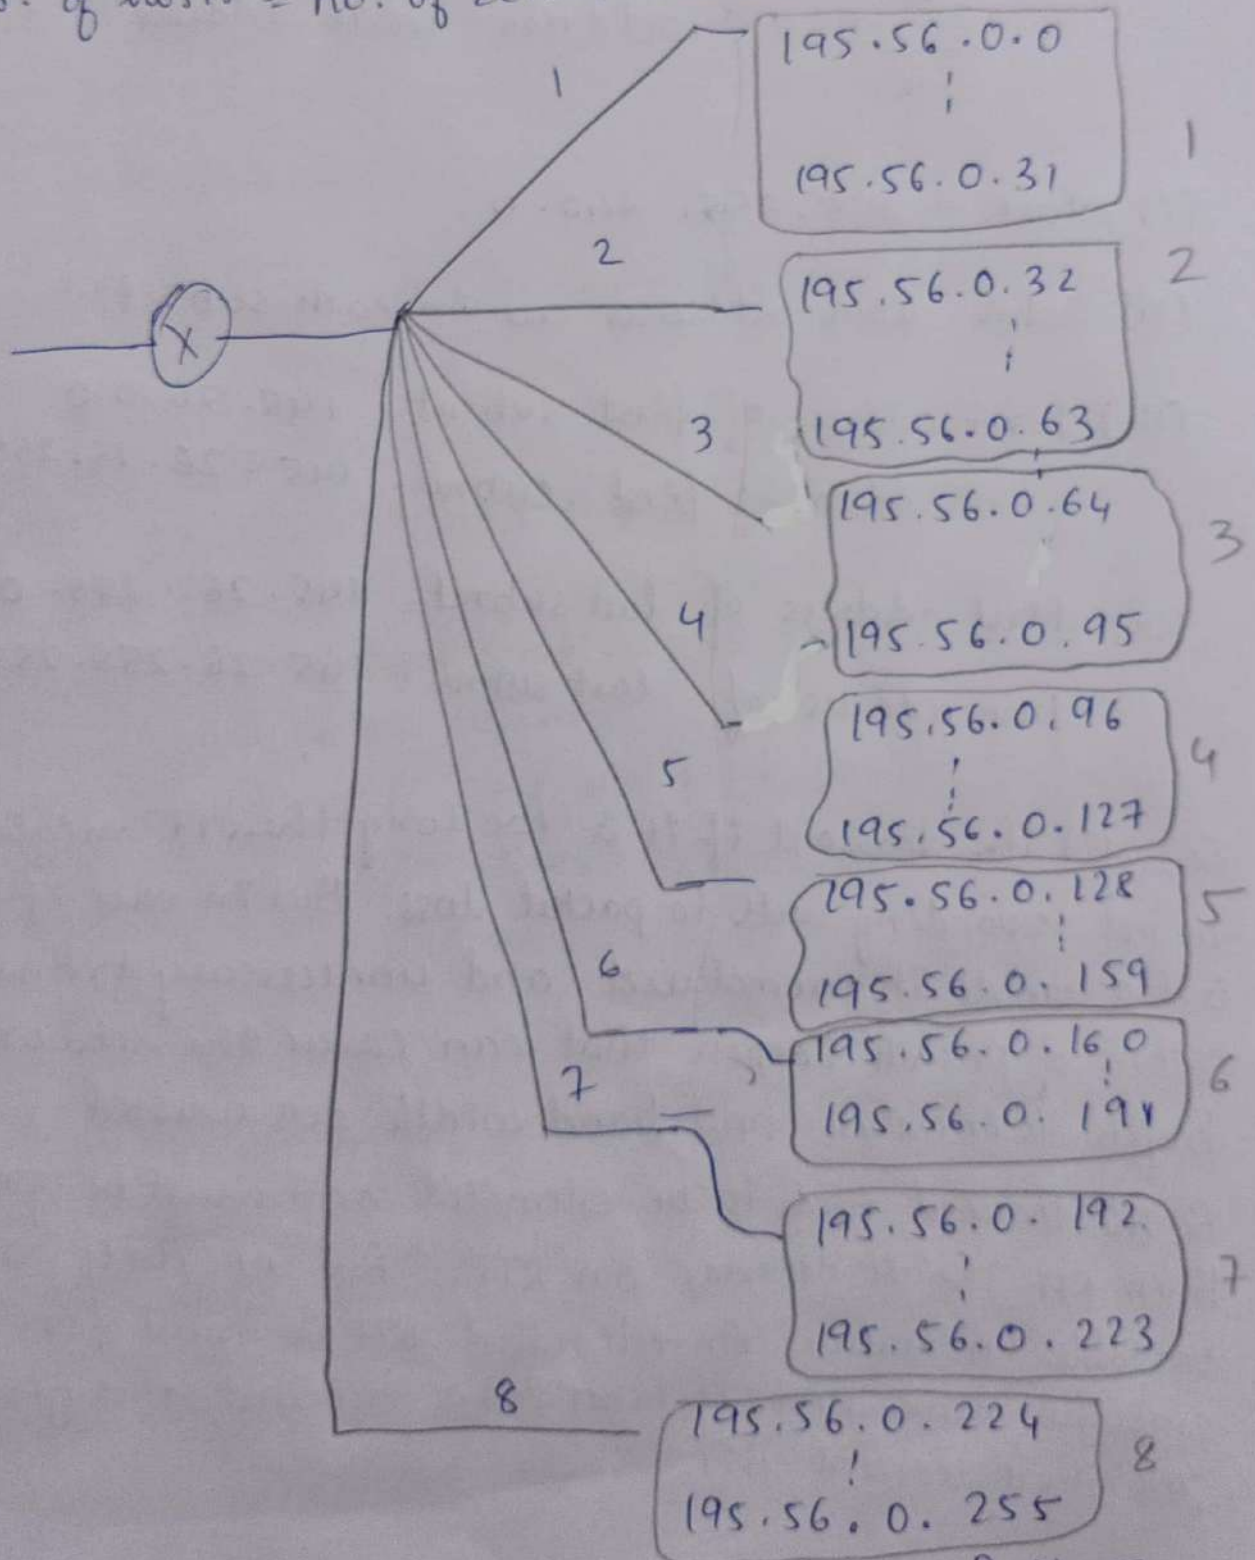 of = No. of
1
195.56.0.0
195.56.0.31
1
2
195.56.0.32
195.56.0.63
2
X
3
195.56.0.64
195.56.0.95
3
4
195.56.0.96
195.56.0.127
4
5
195.56.0.128
195.56.0.159
5
6
195.56.0.160
195.56.0.191
6
7
195.56.0.192
195.56.0.223
7
8
195.56.0.224
195.56.0.255
8